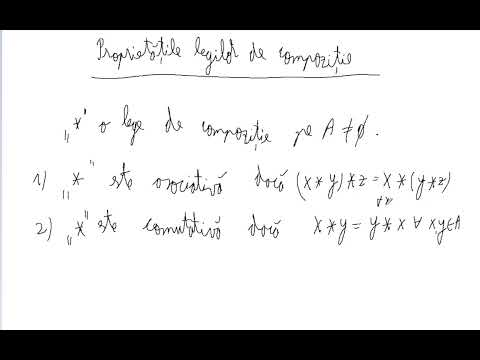 Proprietățile legilor de compoziție
„*" o lege de compoziție pe A ≠ ∅.
1) „*" este asociativă dacă (x * y) * z = x * (y * z)
2) „*" este comutativă dacă x * y = y * x ∀ x,y ∈ A